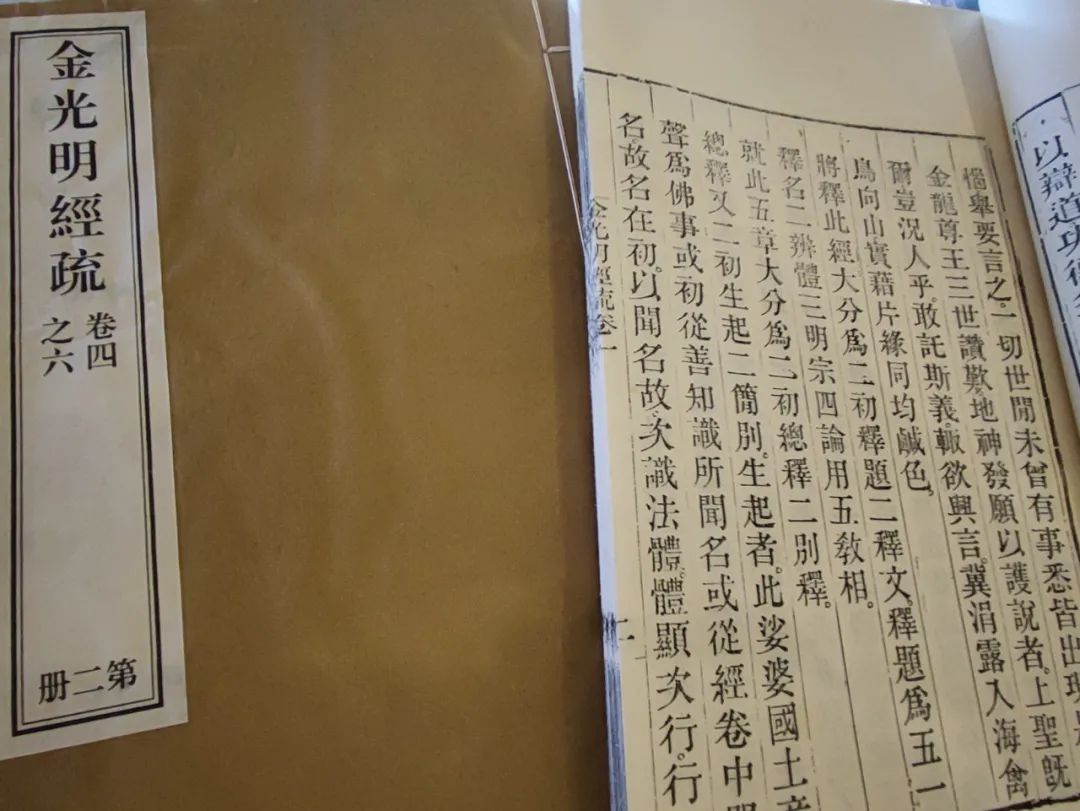 金光明經疏
卷四
之六
第二册
以辯道功
惱舉要言之。一切世閒未曾有事悉皆出現
金龍尊王三世讚歎。地神發願以護說者。上聖旣
爾豈況人乎。敢託斯義。輙欲興言。冀涓露入海禽
鳥向山實藉片緣同均鹹色。
將釋此經大分爲二初釋題二釋文。釋題爲五一
釋名二辨體三明宗四論用五敎相。
就此五章大分爲二。初總釋二別釋。
總釋又二初生起二簡別。生起者。此娑婆國土音
聲爲佛事或初從善知識所聞名或從經卷中
名。故名在初。以聞名故。次識法體。體顯次行。行
金光明經疏卷一